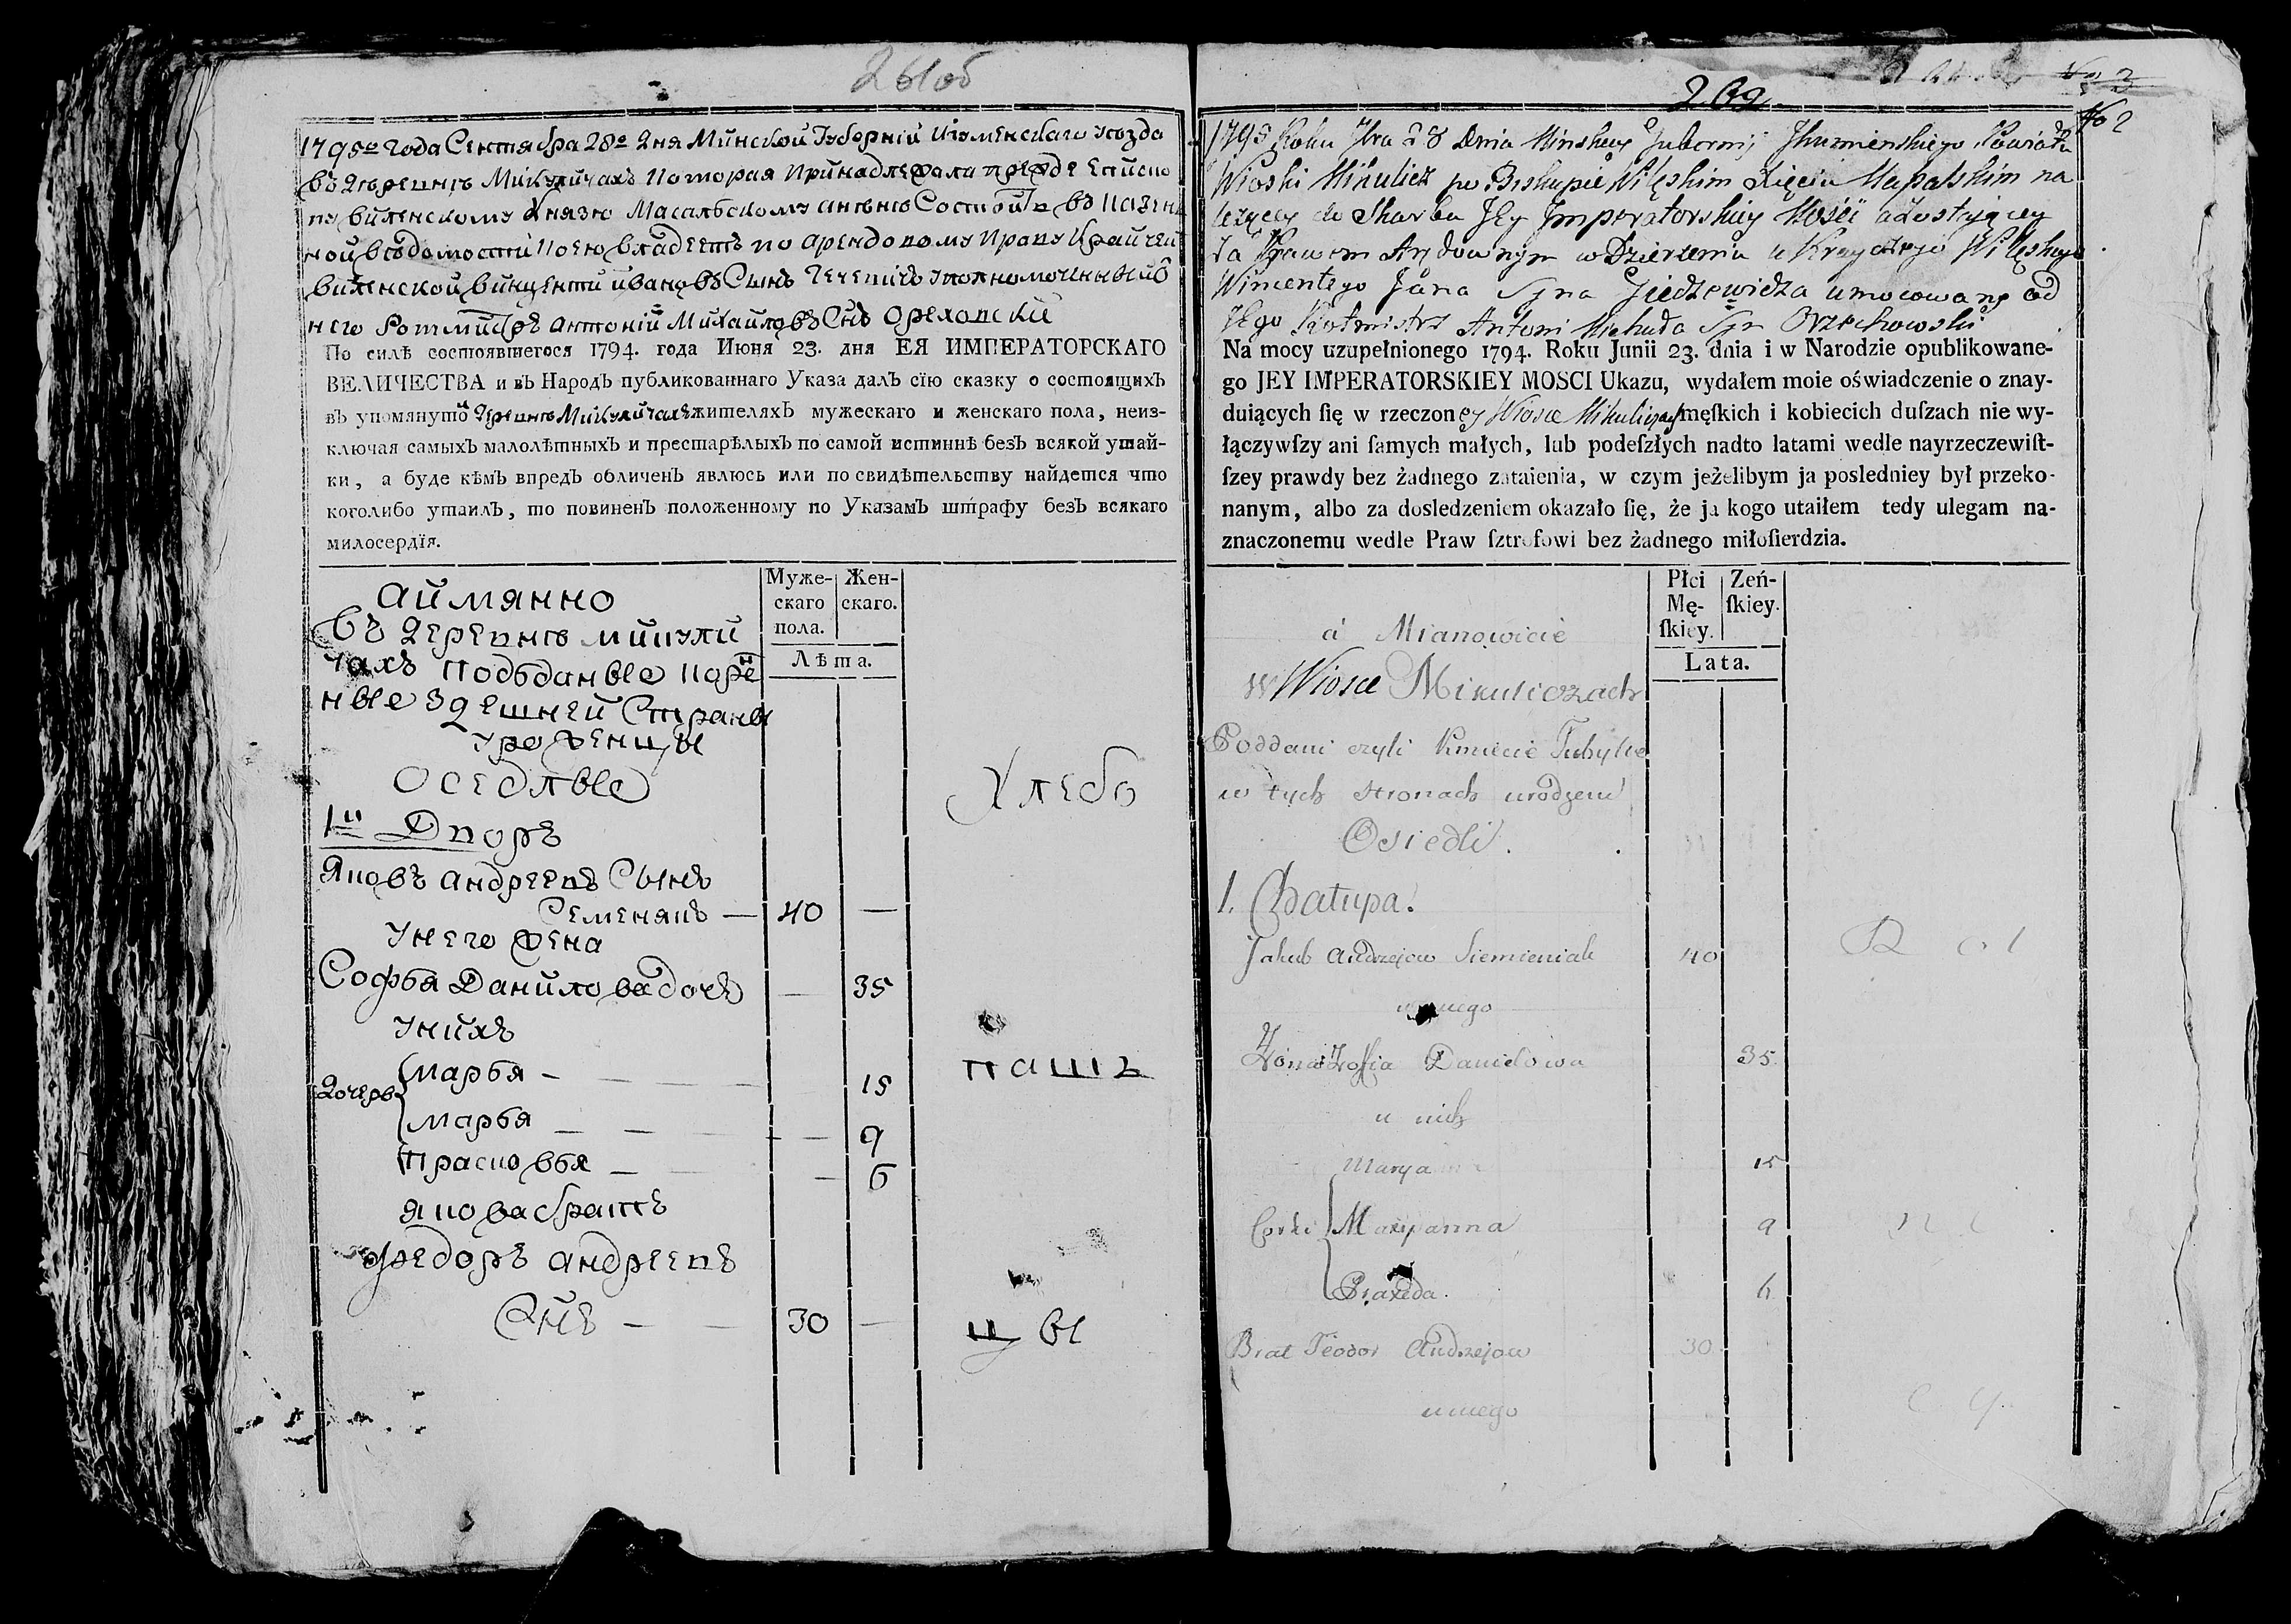 261об
1795го года Сентября 28го дня Минской Губернии Игуменскаго уезда
въ деревне Микуличахъ которая принадлежала прежде Епископу
Виленскому Князю Масальскому а ныне состоитъ въ казенной
ведомости коею владеетъ по арендовому праву Крайчей
Виленской Винценти Ивановъ Сынъ уполномоченный о
него Ротмистръ Антоній Михайловъ Снъ Ореховскій
По силѣ состоявшегося 1794. года Июня 23. дня ЕЯ ИМПЕРАТОРСКАГО
ВЕЛИЧЕСТВА и въ Народъ публикованнаго Указа далъ сїю сказку о состоящихъ
въ упомянутой деревне Микуличахъ жителяхъ мужескаго и женскаго пола, неиз-
ключая самыхъ малолѣтныхъ и престарѣлыхъ по самой истиннѣ безъ всякой утай-
ки, а буде кѣмъ впредъ обличенъ явлюсь или по свидѣтельству найдется что
коголибо утаилъ, то повиненъ положенному по Указамъ штрафу безъ всякаго
милосердїя.
Муже-
скаго
пола.
Жен-
скаго.
Лѣта.
а имянно
въ деревне Микули
чахъ подъданые коре
нные здешней Страны
уроженцы
оседлые
1й Дворъ
Яковъ андреевъ Сынъ
Семенякъ — 40 —
у него жена
Софья Данилова дочъ — 35
у нихъ
дочери
марья — 15
марья — 9
прасковья — 6
якова братъ
федоръ андреевъ
Снъ — 30 —
Хлебо
паш
цы
262
No 2
1795 Roku 7bra 28 Dnia Minskiey Gubernij Jhumenskiego Powiatu
Wioski Mikulicz po Biskupie Wileskim Xięciu Massalskim na
leżącey do Skarbu Jey Jmperatorskiey Mości a zostającey
za Prawem Arędownym w Dzierżeniu u Krayczego Wileskiego
Wincentego Jana Syna Jiedzewicza umocowany od
Jego Rotmistrz Antoni Michała Syn Orzechowski
Na mocy uzupełnionego 1794. Roku Junii 23. dnia i w Narodzie opublikowane-
go JEY IMPERATORSKIEY MOSCI Ukazu, wydałem moie oświadczenie o znay-
duiących ſię w rzeczoney Wiosce Mikuliczach męſkich i kobiecich duſzach nie wy-
łączywſzy ani ſamych małych, lub podeſzłych nadto latami wedle nayrzeczewiſt-
ſzey prawdy bez żadnego zataienia, w czym jeżelibym ja posledniey był przeko-
nanym, albo za dosledzeniem okazało ſię, że ja kogo utaiłem tedy ulegam na-
znaczonemu wedle Praw ſztrofowi bez żadnego miłoſierdzia.
Płci
Mę-
ſkiey.
Zeń-
ſkiey.
Lata.
a Mianowicie
w Wiosce Mikuliczach
Poddani czyli Kmiecie Tubylce
w tych stronach urodzeni
Osiedli.
1. Chatupa.
Jakub Andrzejow Siemieniak 40
u niego
Żona Zofia Danielowa 35
u nich
Marya 15
Corki
Maryanna 9
Praxeda. 6
Brat Teodor Andrzejow 30
u niego